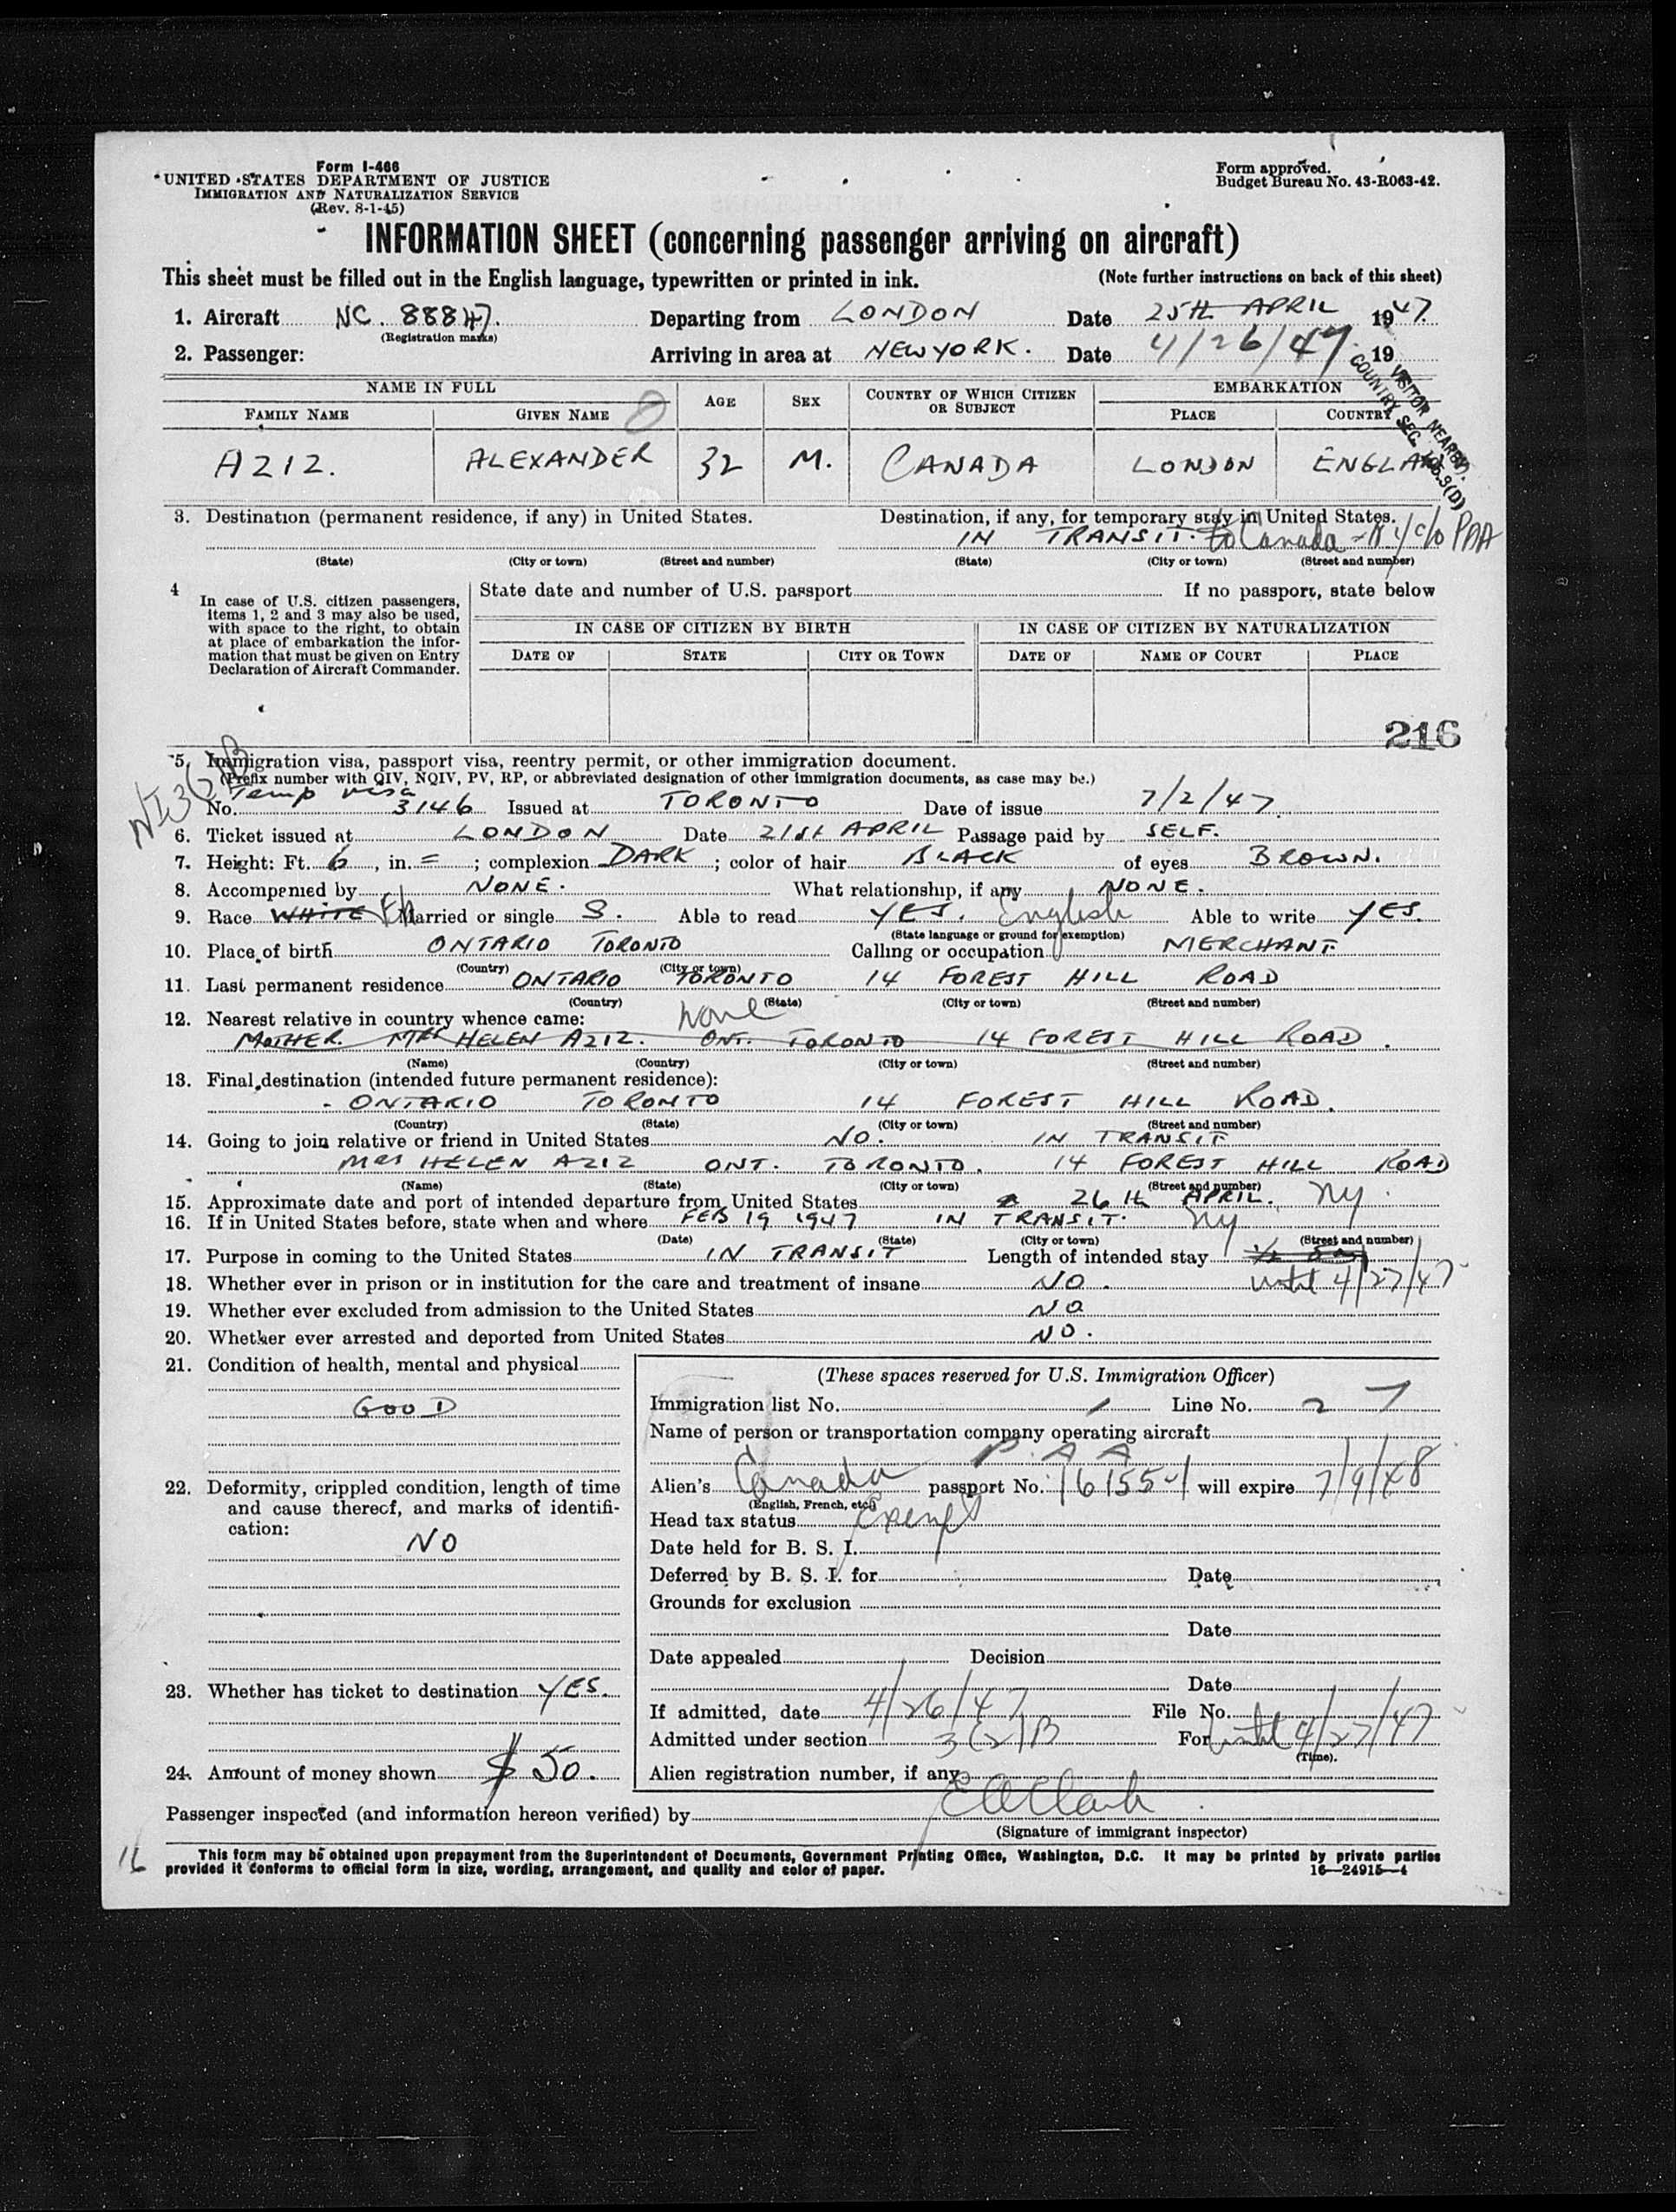 Form I-466
UNITED STATES DEPARTMENT OF JUSTICE
IMMIGRATION AND NATURALIZATION SERVICE
(Rev. 8-1-45)
Form approved.
Budget Bureau No. 43-R063-42.
INFORMATION SHEET (concerning passenger arriving on aircraft)
This sheet must be filled out in the English language, typewritten or printed in ink. (Note further instructions on back of this sheet)
1. Aircraft NC. 88847. Departing from LONDON Date 25TH APRIL 1947.
(Registration marks)
2. Passenger: Arriving in area at NEW YORK. Date 4/26/47 19
VISITOR NEARBY
COUNTRY SEC.
NAME IN FULL AGE SEX COUNTRY OF WHICH CITIZEN OR SUBJECT EMBARKATION
FAMILY NAME GIVEN NAME PLACE COUNTRY
AZIZ. ALEXANDER 32 M. CANADA LONDON ENGLAND
3. Destination (permanent residence, if any) in United States. Destination, if any, for temporary stay in United States.
IN TRANSIT. to Canada - N Y c/o PAA
(State) (City or town) (Street and number) (State) (City or town) (Street and number)
4 In case of U.S. citizen passengers, items 1, 2 and 3 may also be used, with space to the right, to obtain at place of embarkation the information that must be given on Entry Declaration of Aircraft Commander.
State date and number of U.S. passport If no passport, state below
IN CASE OF CITIZEN BY BIRTH IN CASE OF CITIZEN BY NATURALIZATION
DATE OF STATE CITY OR TOWN DATE OF NAME OF COURT PLACE
216
5. Immigration visa, passport visa, reentry permit, or other immigration document.
(Prefix number with QIV, NQIV, PV, RP, or abbreviated designation of other immigration documents, as case may be.)
Temp visa
No. 3146 Issued at TORONTO Date of issue 7/2/47
6. Ticket issued at LONDON Date 21st APRIL Passage paid by SELF.
7. Height: Ft. 6, in. = ; complexion DARK ; color of hair BLACK of eyes BROWN.
8. Accompanied by NONE. What relationship, if any NONE.
9. Race WHITE Married or single S. Able to read YES. English Able to write YES.
(State language or ground for exemption)
10. Place of birth ONTARIO TORONTO Calling or occupation MERCHANT.
(Country) (City or town)
11. Last permanent residence ONTARIO TORONTO 14 FOREST HILL ROAD
(Country) (State) (City or town) (Street and number)
12. Nearest relative in country whence came: none
MOTHER. MRS HELEN AZIZ. ONT. TORONTO 14 FOREST HILL ROAD.
(Name) (Country) (City or town) (Street and number)
13. Final destination (intended future permanent residence):
ONTARIO TORONTO 14 FOREST HILL ROAD.
(Country) (State) (City or town) (Street and number)
14. Going to join relative or friend in United States NO. IN TRANSIT
MRS HELEN AZIZ ONT. TORONTO. 14 FOREST HILL ROAD
(Name) (State) (City or town) (Street and number)
15. Approximate date and port of intended departure from United States 26th APRIL. NY.
16. If in United States before, state when and where FEB 19 1947 IN TRANSIT. NY
(Date) (State) (City or town) (Street and number)
17. Purpose in coming to the United States IN TRANSIT Length of intended stay
until 4/27/47
18. Whether ever in prison or in institution for the care and treatment of insane NO.
19. Whether ever excluded from admission to the United States NO
20. Whether ever arrested and deported from United States NO.
21. Condition of health, mental and physical
GOOD
22. Deformity, crippled condition, length of time and cause thereof, and marks of identification:
NO
23. Whether has ticket to destination YES.
24. Amount of money shown $ 50.
(These spaces reserved for U.S. Immigration Officer)
Immigration list No. 1 Line No. 27
Name of person or transportation company operating aircraft
P.A A
Alien's Canada passport No. will expire 7/9/48
(English, French, etc.)
Head tax status Exempt
Date held for B. S. I.
Deferred by B. S. I. for Date
Grounds for exclusion
Date
Date appealed Decision
Date
If admitted, date 4/26/47 File No.
Admitted under section 3(2)B For until 4/27/47
(Time).
Alien registration number, if any
Passenger inspected (and information hereon verified) by E A Clark
(Signature of immigrant inspector)
16
This form may be obtained upon prepayment from the Superintendent of Documents, Government Printing Office, Washington, D.C. It may be printed by private parties
provided it conforms to official form in size, wording, arrangement, and quality and color of paper. 16—24915-4